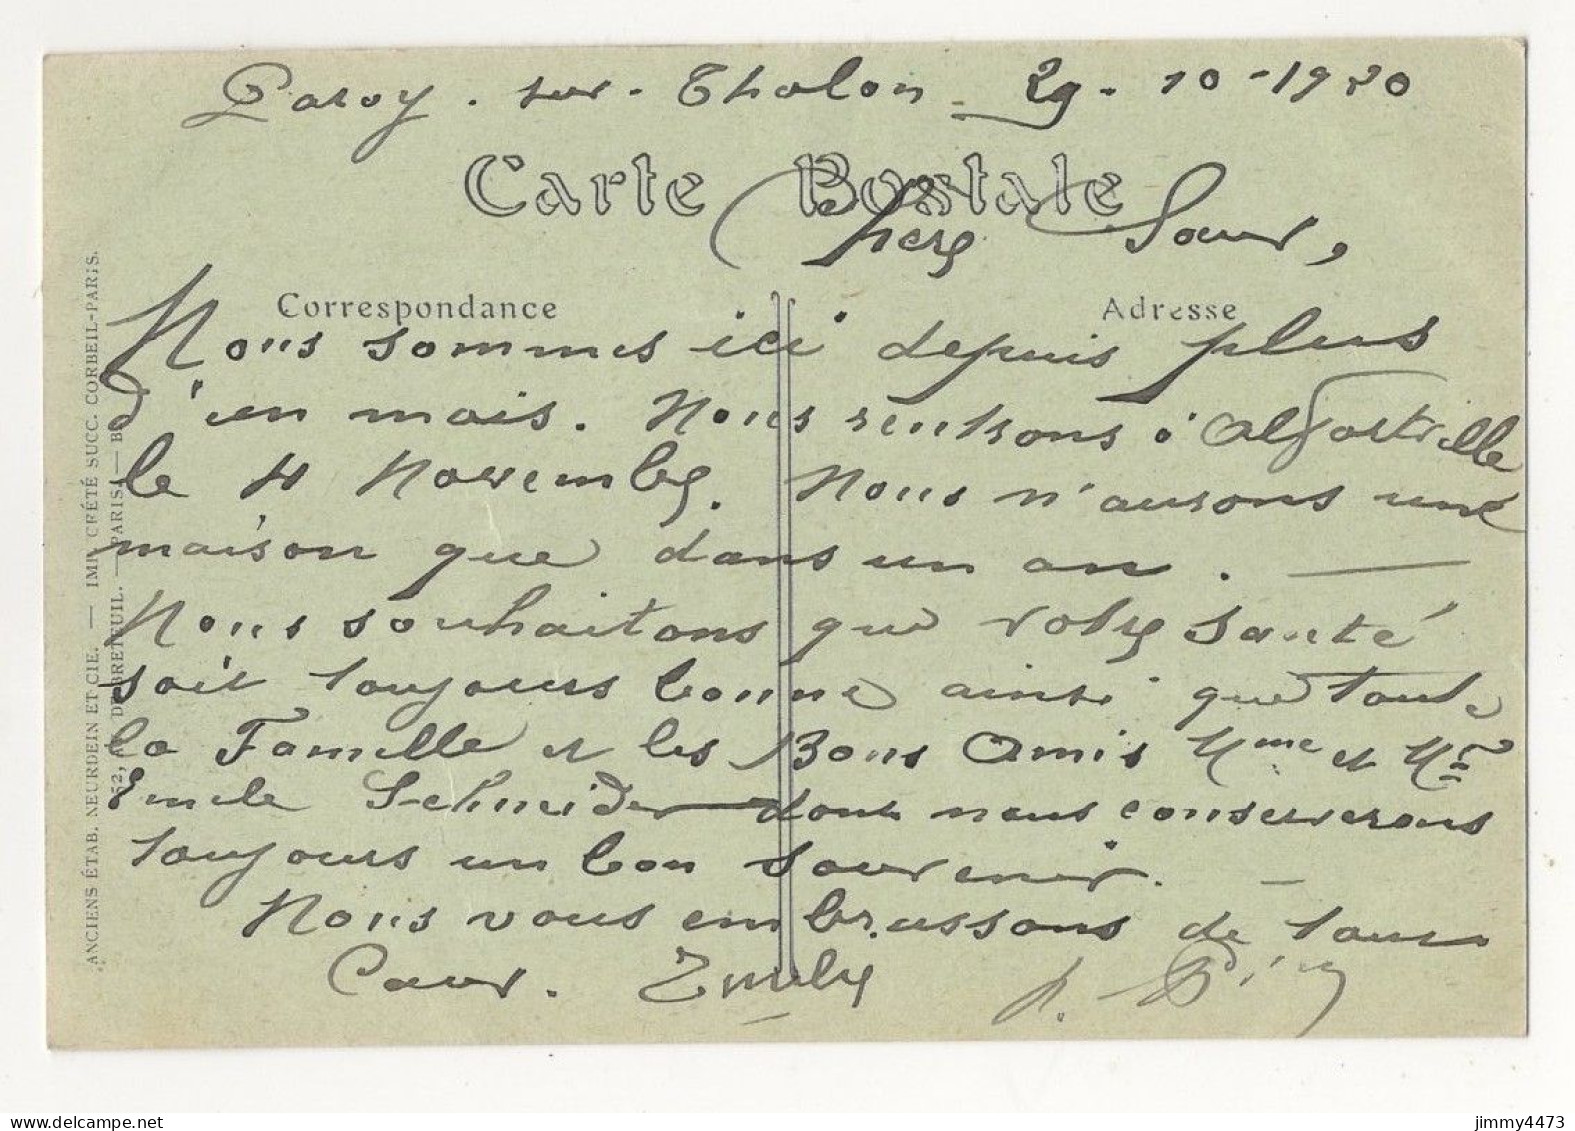 Paroy. sur. Tholon. 29. 10-1920
Carte Postale
Chère Sœur,
Correspondance
Adresse
Nous sommes ici depuis plus
d'un mois. Nous rentrons à Alfortville
le 4 Novembre. Nous n'aurons une
maison que dans un an. —
Nous souhaitons que votre santé
soit toujours bonne ainsi que toute
la Famille et les Bons Amis Mme et Mr
Emile Schneider dont nous conserverons
toujours un bon souvenir. —
Nous vous embrassons de tout
Cœur.
ANCIENS ÉTAB. NEURDEIN ET CIE. — IMP. CRÉTÉ SUCC. CORBEIL-PARIS.
52, DE BRETEUIL. — PARIS — B
jimmy4473